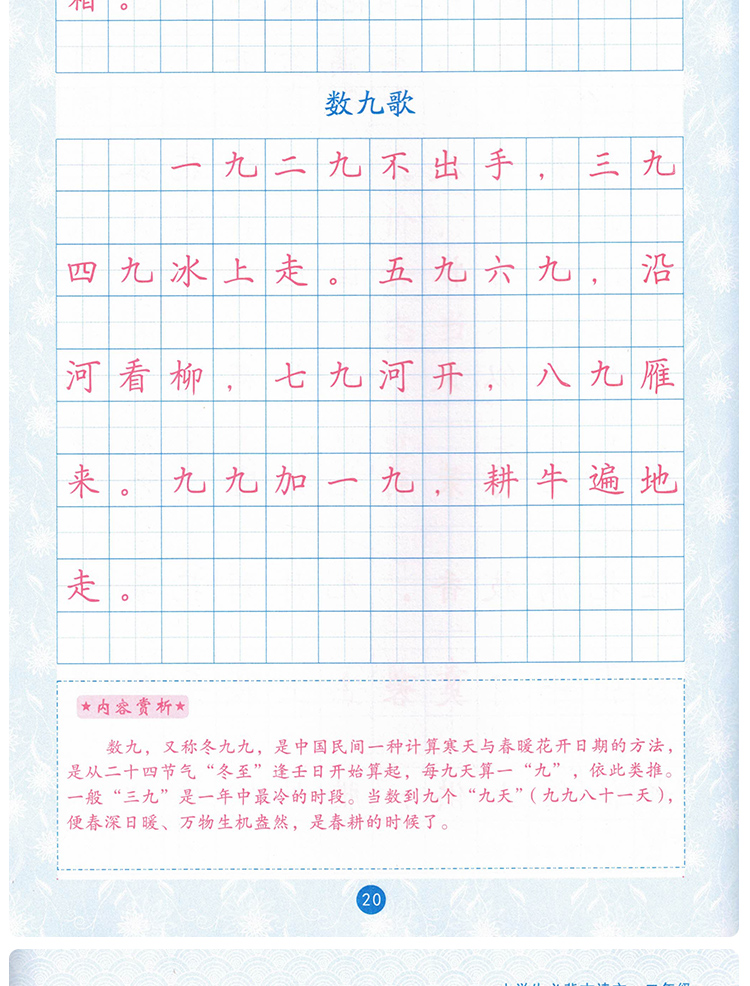 相。
数九歌
一九二九不出手，三九
四九冰上走。五九六九，沿
河看柳，七九河开，八九雁
来。九九加一九，耕牛遍地
走。
★内容赏析★
数九，又称冬九九，是中国民间一种计算寒天与春暖花开日期的方法，
是从二十四节气“冬至”逢壬日开始算起，每九天算一“九”，依此类推。
一般“三九”是一年中最冷的时段。当数到九个“九天”（九九八十一天），
便春深日暖、万物生机盎然，是春耕的时候了。
20